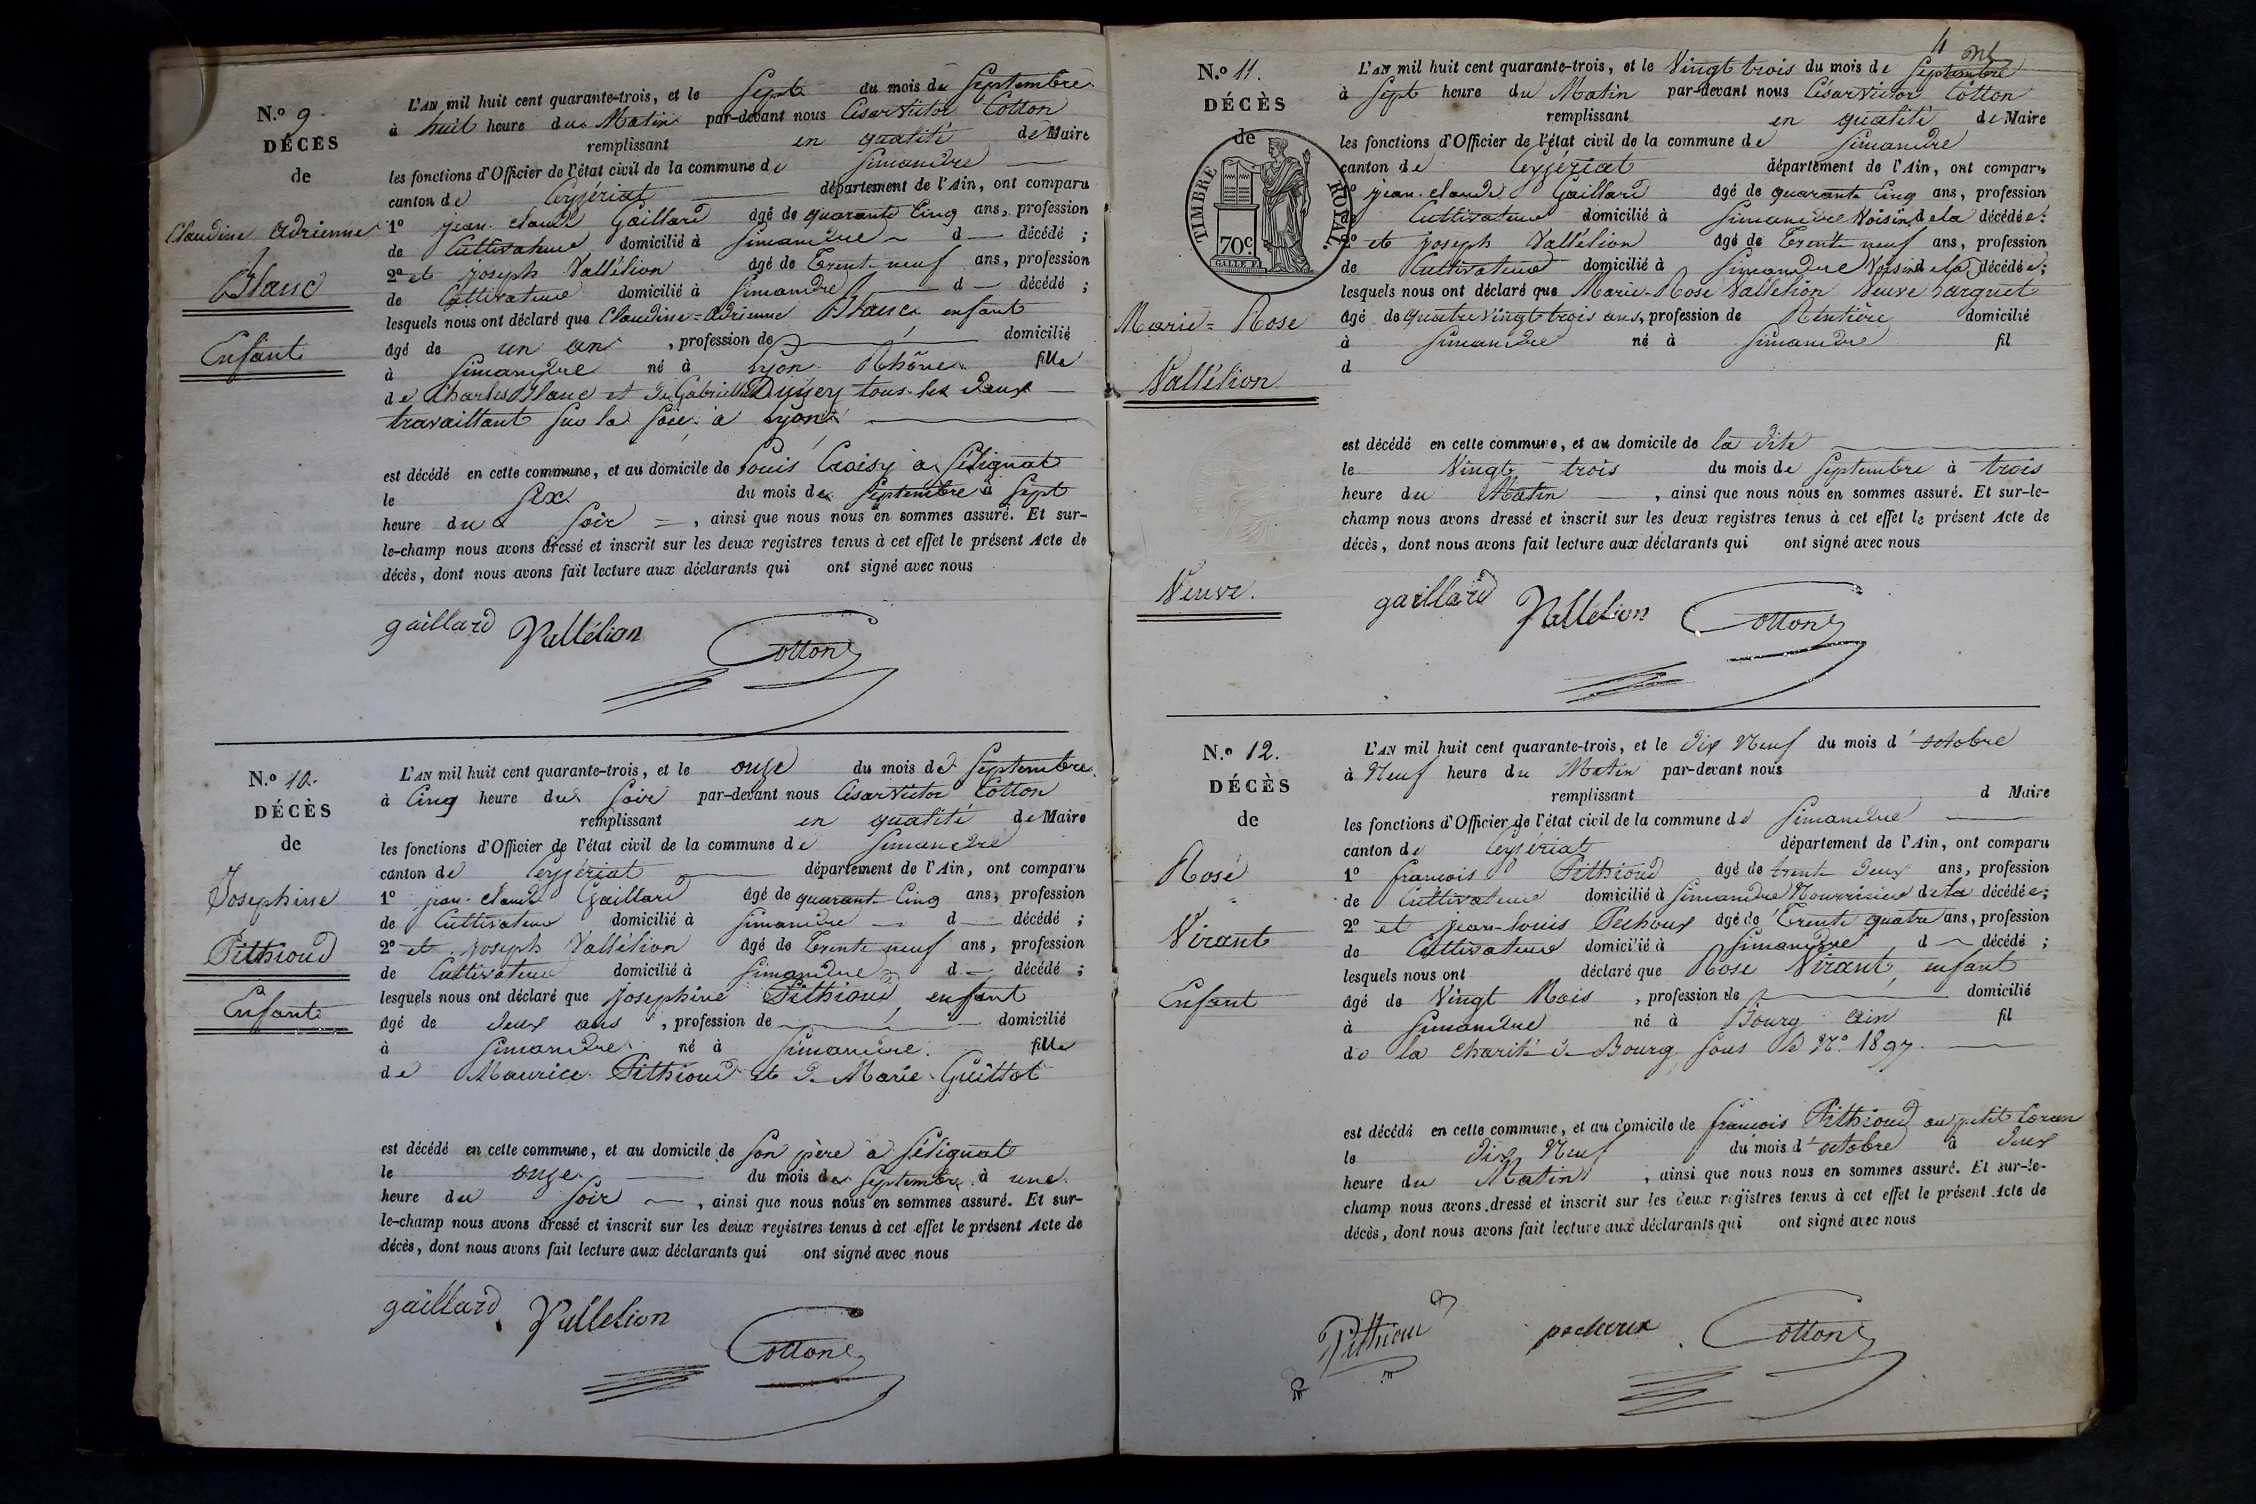 N.º 9.
DÉCÈS
de
Claudine Adrienne
Blanc
Enfant
L'AN mil huit cent quarante-trois, et le Sept du mois de Septembre
à huit heure du Matin par-devant nous César Victor Cotton
remplissant en qualité de Maire
les fonctions d'Officier de l'état civil de la commune de Simandre
canton de Ceyzériat département de l'Ain, ont comparu
1º jean-claude Gaillard âgé de quarante Cinq ans, profession
de Cultivateur domicilié à Simandre d décédé ;
2º et joseph Vallélion âgé de Trente neuf ans, profession
de Cultivateur domicilié à Simandre d décédé ;
lesquels nous ont déclaré que Claudine=Adrienne Blanc enfant
âgé de un an , profession de domicilié
à Simandre né à Lyon Rhône fille
de Charles Blanc et de Gabrielle tous les deux
travaillant Sur la Soie à Lyon
est décédé en cette commune, et au domicile de Louis Croisy à Sélignat
le Six du mois de Septembre à Sept
heure du Soir , ainsi que nous nous en sommes assuré. Et sur-
le-champ nous avons dressé et inscrit sur les deux registres tenus à cet effet le présent Acte de
décès, dont nous avons fait lecture aux déclarants qui ont signé avec nous
gaillard Vallélion Cotton
N.º 10.
DÉCÈS
de
Josephine
Pithioud
Enfant
L'AN mil huit cent quarante-trois, et le onze du mois de Septembre
à Cinq heure du Soir par-devant nous César Victor Cotton
remplissant en qualité de Maire
les fonctions d'Officier de l'état civil de la commune de Simandre
canton de Ceyzériat département de l'Ain, ont comparu
1º jean-claude Gaillard âgé de quarante Cinq ans, profession
de Cultivateur domicilié à Simandre d décédé ;
2º et joseph Vallélion âgé de Trente neuf ans, profession
de Cultivateur domicilié à Simandre d décédé ;
lesquels nous ont déclaré que Josephine Pithioud enfant
âgé de deux ans , profession de domicilié
à Simandre né à Simandre fille
de Maurice Pithioud et de Marie Guittot
est décédé en cette commune, et au domicile de Son père à Sélignat
le onze du mois de Septembre à une
heure du Soir , ainsi que nous nous en sommes assuré. Et sur-
le-champ nous avons dressé et inscrit sur les deux registres tenus à cet effet le présent Acte de
décès, dont nous avons fait lecture aux déclarants qui ont signé avec nous
gaillard Vallelion Cotton
4
N.º 11.
DÉCÈS
de
TIMBRE ROYAL.
70c
Marie=Rose
Vallélion
Veuve.
L'AN mil huit cent quarante-trois, et le Vingt trois du mois de Septembre
à Sept heure du Matin par-devant nous César Victor Cotton
remplissant en qualité de Maire
les fonctions d'Officier de l'état civil de la commune de Simandre
canton de Ceyzériat département de l'Ain, ont comparu
1º jean-claude Gaillard âgé de quarante Cinq ans, profession
de Cultivateur domicilié à Simandre Voisin de la décédée ;
2º et joseph Vallélion âgé de Trente neuf ans, profession
de Cultivateur domicilié à Simandre Voisin de la décédée ;
lesquels nous ont déclaré que Marie-Rose Vallélion Veuve
âgé de quatre vingt trois ans, profession de Rentière domicilié
à Simandre né à Simandre fil
d
est décédé en cette commune, et au domicile de la dite
le Vingt trois du mois de Septembre à trois
heure du Matin , ainsi que nous nous en sommes assuré. Et sur-le-
champ nous avons dressé et inscrit sur les deux registres tenus à cet effet le présent Acte de
décès, dont nous avons fait lecture aux déclarants qui ont signé avec nous
gaillard Vallelion Cotton
N.º 12.
DÉCÈS
de
Rose
Virant
Enfant
L'AN mil huit cent quarante-trois, et le Dix Neuf du mois d'octobre
à Neuf heure du Matin par-devant nous
remplissant d Maire
les fonctions d'Officier de l'état civil de la commune de Simandre
canton de Ceyzériat département de l'Ain, ont comparu
1º francois Pithioud âgé de trente Deux ans, profession
de Cultivateur domicilié à Simandre Nourricier de la décédée ;
2º et jean-louis Pechoux âgé de Trente quatre ans, profession
de Cultivateur domicilié à Simandre d décédé ;
lesquels nous ont déclaré que Rose Virant, enfant
âgé de Vingt Mois , profession de domicilié
à Simandre né à Bourg Ain fil
de la charité de Bourg Sous le Nº 1897.
est décédé en cette commune, et au domicile de francois Pithioud au petit Coran
le Dix Neuf du mois d'octobre à deux
heure du Matin , ainsi que nous nous en sommes assuré. Et sur-le-
champ nous avons dressé et inscrit sur les deux registres tenus à cet effet le présent Acte de
décès, dont nous avons fait lecture aux déclarants qui ont signé avec nous
Pithioud pechoux Cotton